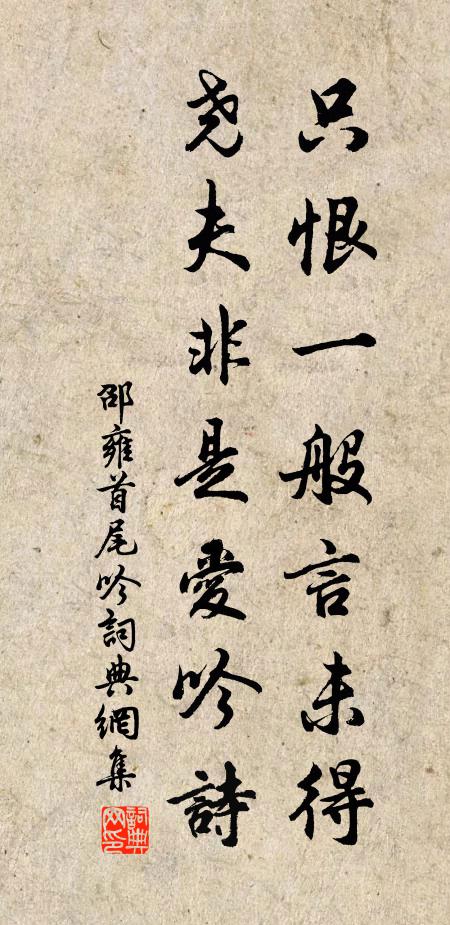 只恨一般言未得
尧夫非是愛吟詩
邵雍首尾吟詞典網集
詞典網印